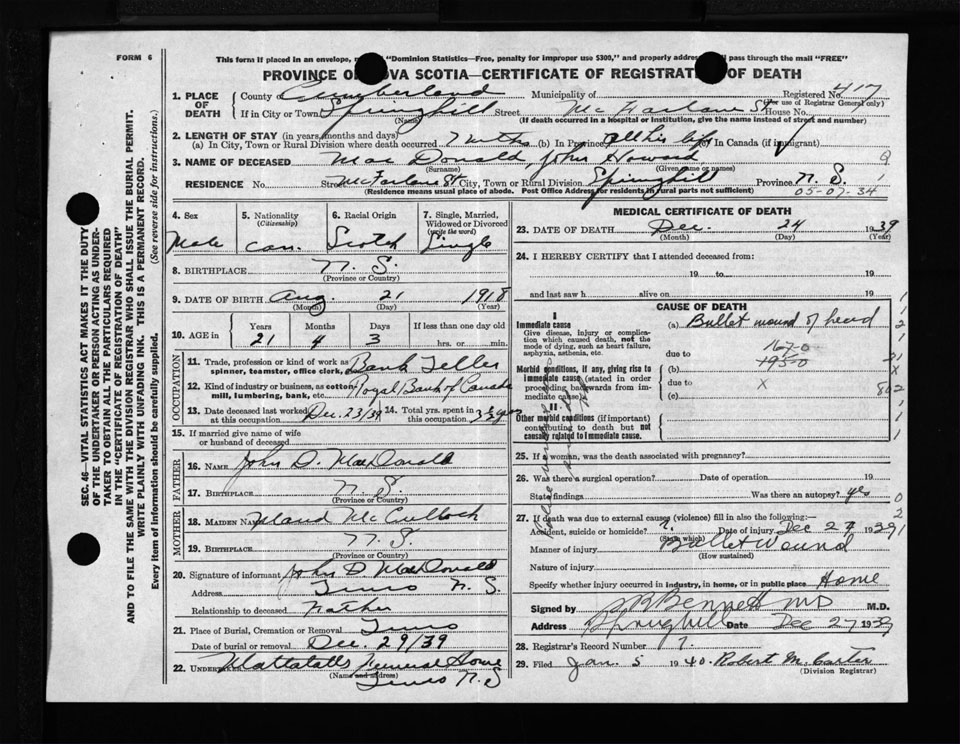 FORM 6
This form if placed in an envelope, "Dominion Statistics—Free, penalty for improper use $300," and properly address pass through the mail "FREE"
PROVINCE O VA SCOTIA—CERTIFICATE OF REGISTRAT OF DEATH
Registered No. 417
(For use of Registrar General only)
1. PLACE OF DEATH
County of Cumberland Municipality of
If in City or Town Springhill Street McFarlane St. House No.
(Name) (If death occurred in a hospital or institution, give the name instead of street and number)
2. LENGTH OF STAY (in years, months and days)
(a) In City, Town or Rural Division where death occurred 7 mths (b) In Province all his life (c) In Canada (if immigrant)
3. NAME OF DECEASED MacDonald, John Howard
(Surname) (Given name or names)
RESIDENCE No. Street McFarlane St City, Town or Rural Division Springhill Province N. S.
(Residence means usual place of abode. Post Office Address for residents in rural parts not sufficient)
05-07-34
4. Sex Male
5. Nationality (Citizenship) Can.
6. Racial Origin Scotch
7. Single, Married, Widowed or Divorced (write the word) Single
8. BIRTHPLACE N. S.
(Province or Country)
9. DATE OF BIRTH Aug. 21 1918
(Month) (Day) (Year)
10. AGE in Years Months Days If less than one day old
21 4 3 hrs. or min.
OCCUPATION
11. Trade, profession or kind of work as spinner, teamster, office clerk, Bank Teller
12. Kind of industry or business, as cotton mill, lumbering, bank, etc. Royal Bank of Canada
13. Date deceased last worked at this occupation Dec. 23/39 14. Total yrs. spent in this occupation 3½ yrs
15. If married give name of wife or husband of deceased
FATHER
16. NAME John D. MacDonald
17. BIRTHPLACE N. S.
(Province or Country)
MOTHER
18. MAIDEN NAME Maud McCulloch
19. BIRTHPLACE N. S.
(Province or Country)
20. Signature of informant John D MacDonald
Address Truro N. S.
Relationship to deceased Father
21. Place of Burial, Cremation or Removal Truro
Date of burial or removal Dec. 29/39
22. UNDERTAKER Mattatalls Funeral Home
(Name and address)
Truro N. S
MEDICAL CERTIFICATE OF DEATH
23. DATE OF DEATH Dec. 24 1939
(Month) (Day) (Year)
24. I HEREBY CERTIFY that I attended deceased from:
19 to 19
and last saw h alive on 19
CAUSE OF DEATH
I
Immediate cause
Give disease, injury or complication which caused death, not the mode of dying, such as heart failure, asphyxia, asthenia, etc.
(a) Bullet wound of head
167-0
due to 195-0
Morbid conditions, if any, giving rise to immediate cause (stated in order proceeding backwards from immediate cause).
(b)
due to X
(c)
II
Other morbid conditions (if important) contributing to death but not causally related to immediate cause.
25. If a woman, was the death associated with pregnancy?
26. Was there a surgical operation? Date of operation 19
State findings Was there an autopsy? yes
27. If death was due to external causes (violence) fill in also the following:—
Accident, suicide or homicide? ? Date of injury Dec 27 1939
(State which)
Manner of injury Bullet wound
(How sustained)
Nature of injury
Specify whether injury occurred in industry, in home, or in public place Home
Signed by Bennett MD M.D.
Address Springhill Date Dec 27 1939
28. Registrar's Record Number 7.
29. Filed Jan. 5 1940. Robert M. Carter
(Division Registrar)
SEC. 46—VITAL STATISTICS ACT MAKES IT THE DUTY
OF THE UNDERTAKER OR PERSON ACTING AS UNDERTAKER TO OBTAIN ALL THE PARTICULARS REQUIRED
IN THE "CERTIFICATE OF REGISTRATION OF DEATH"
AND TO FILE THE SAME WITH THE DIVISION REGISTRAR WHO SHALL ISSUE THE BURIAL PERMIT.
WRITE PLAINLY WITH UNFADING INK. THIS IS A PERMANENT RECORD.
Every item of information should be carefully supplied. (See reverse side for instructions.)